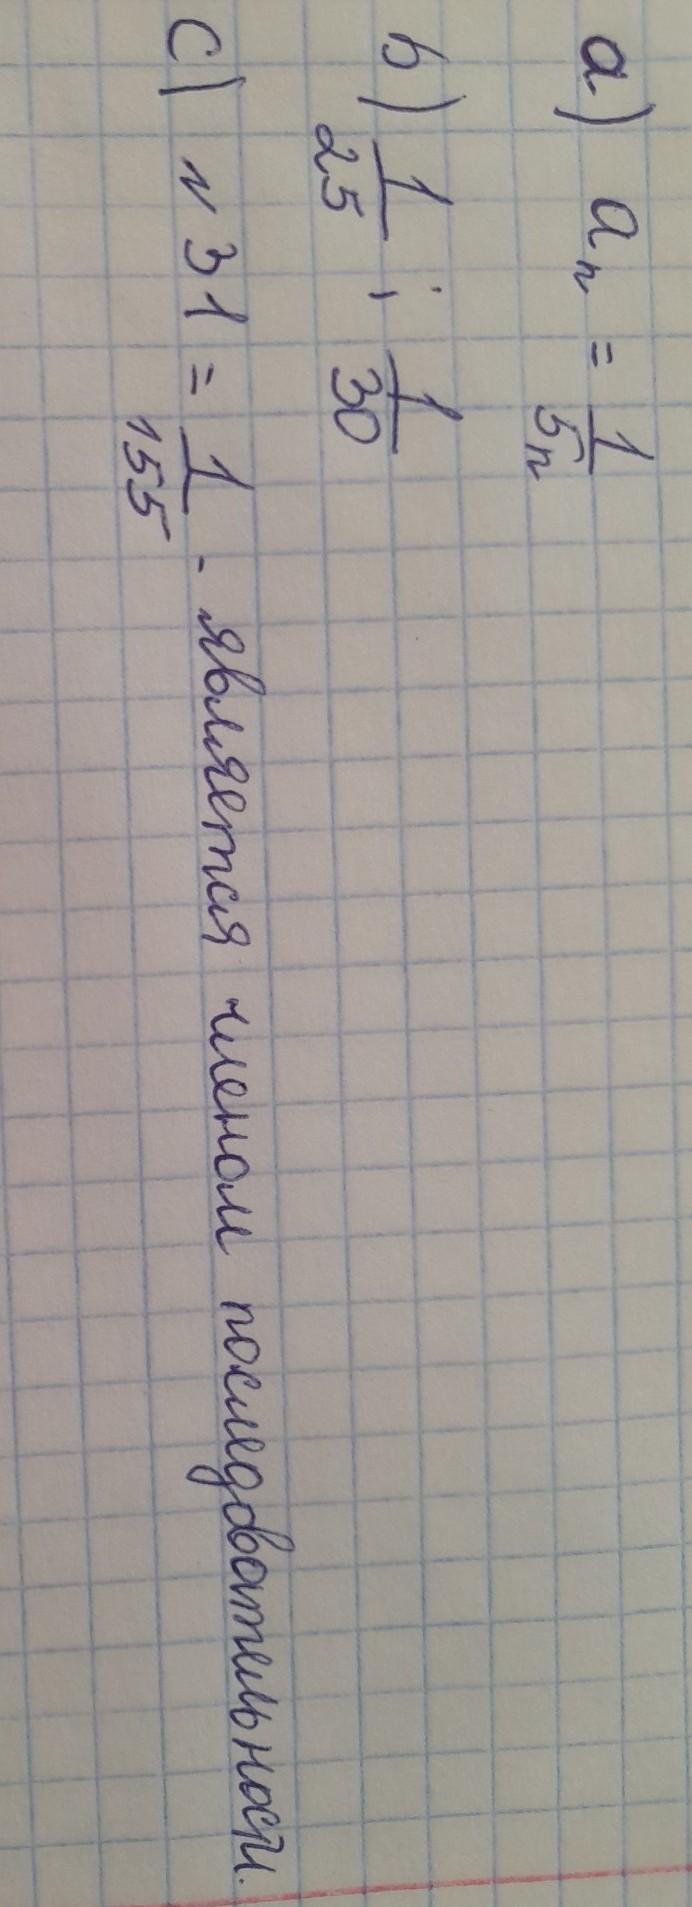 a) aₙ = 1/5n
b) 1/25 ; 1/30
c) n 31 = 1/155 - является членом последовательности.